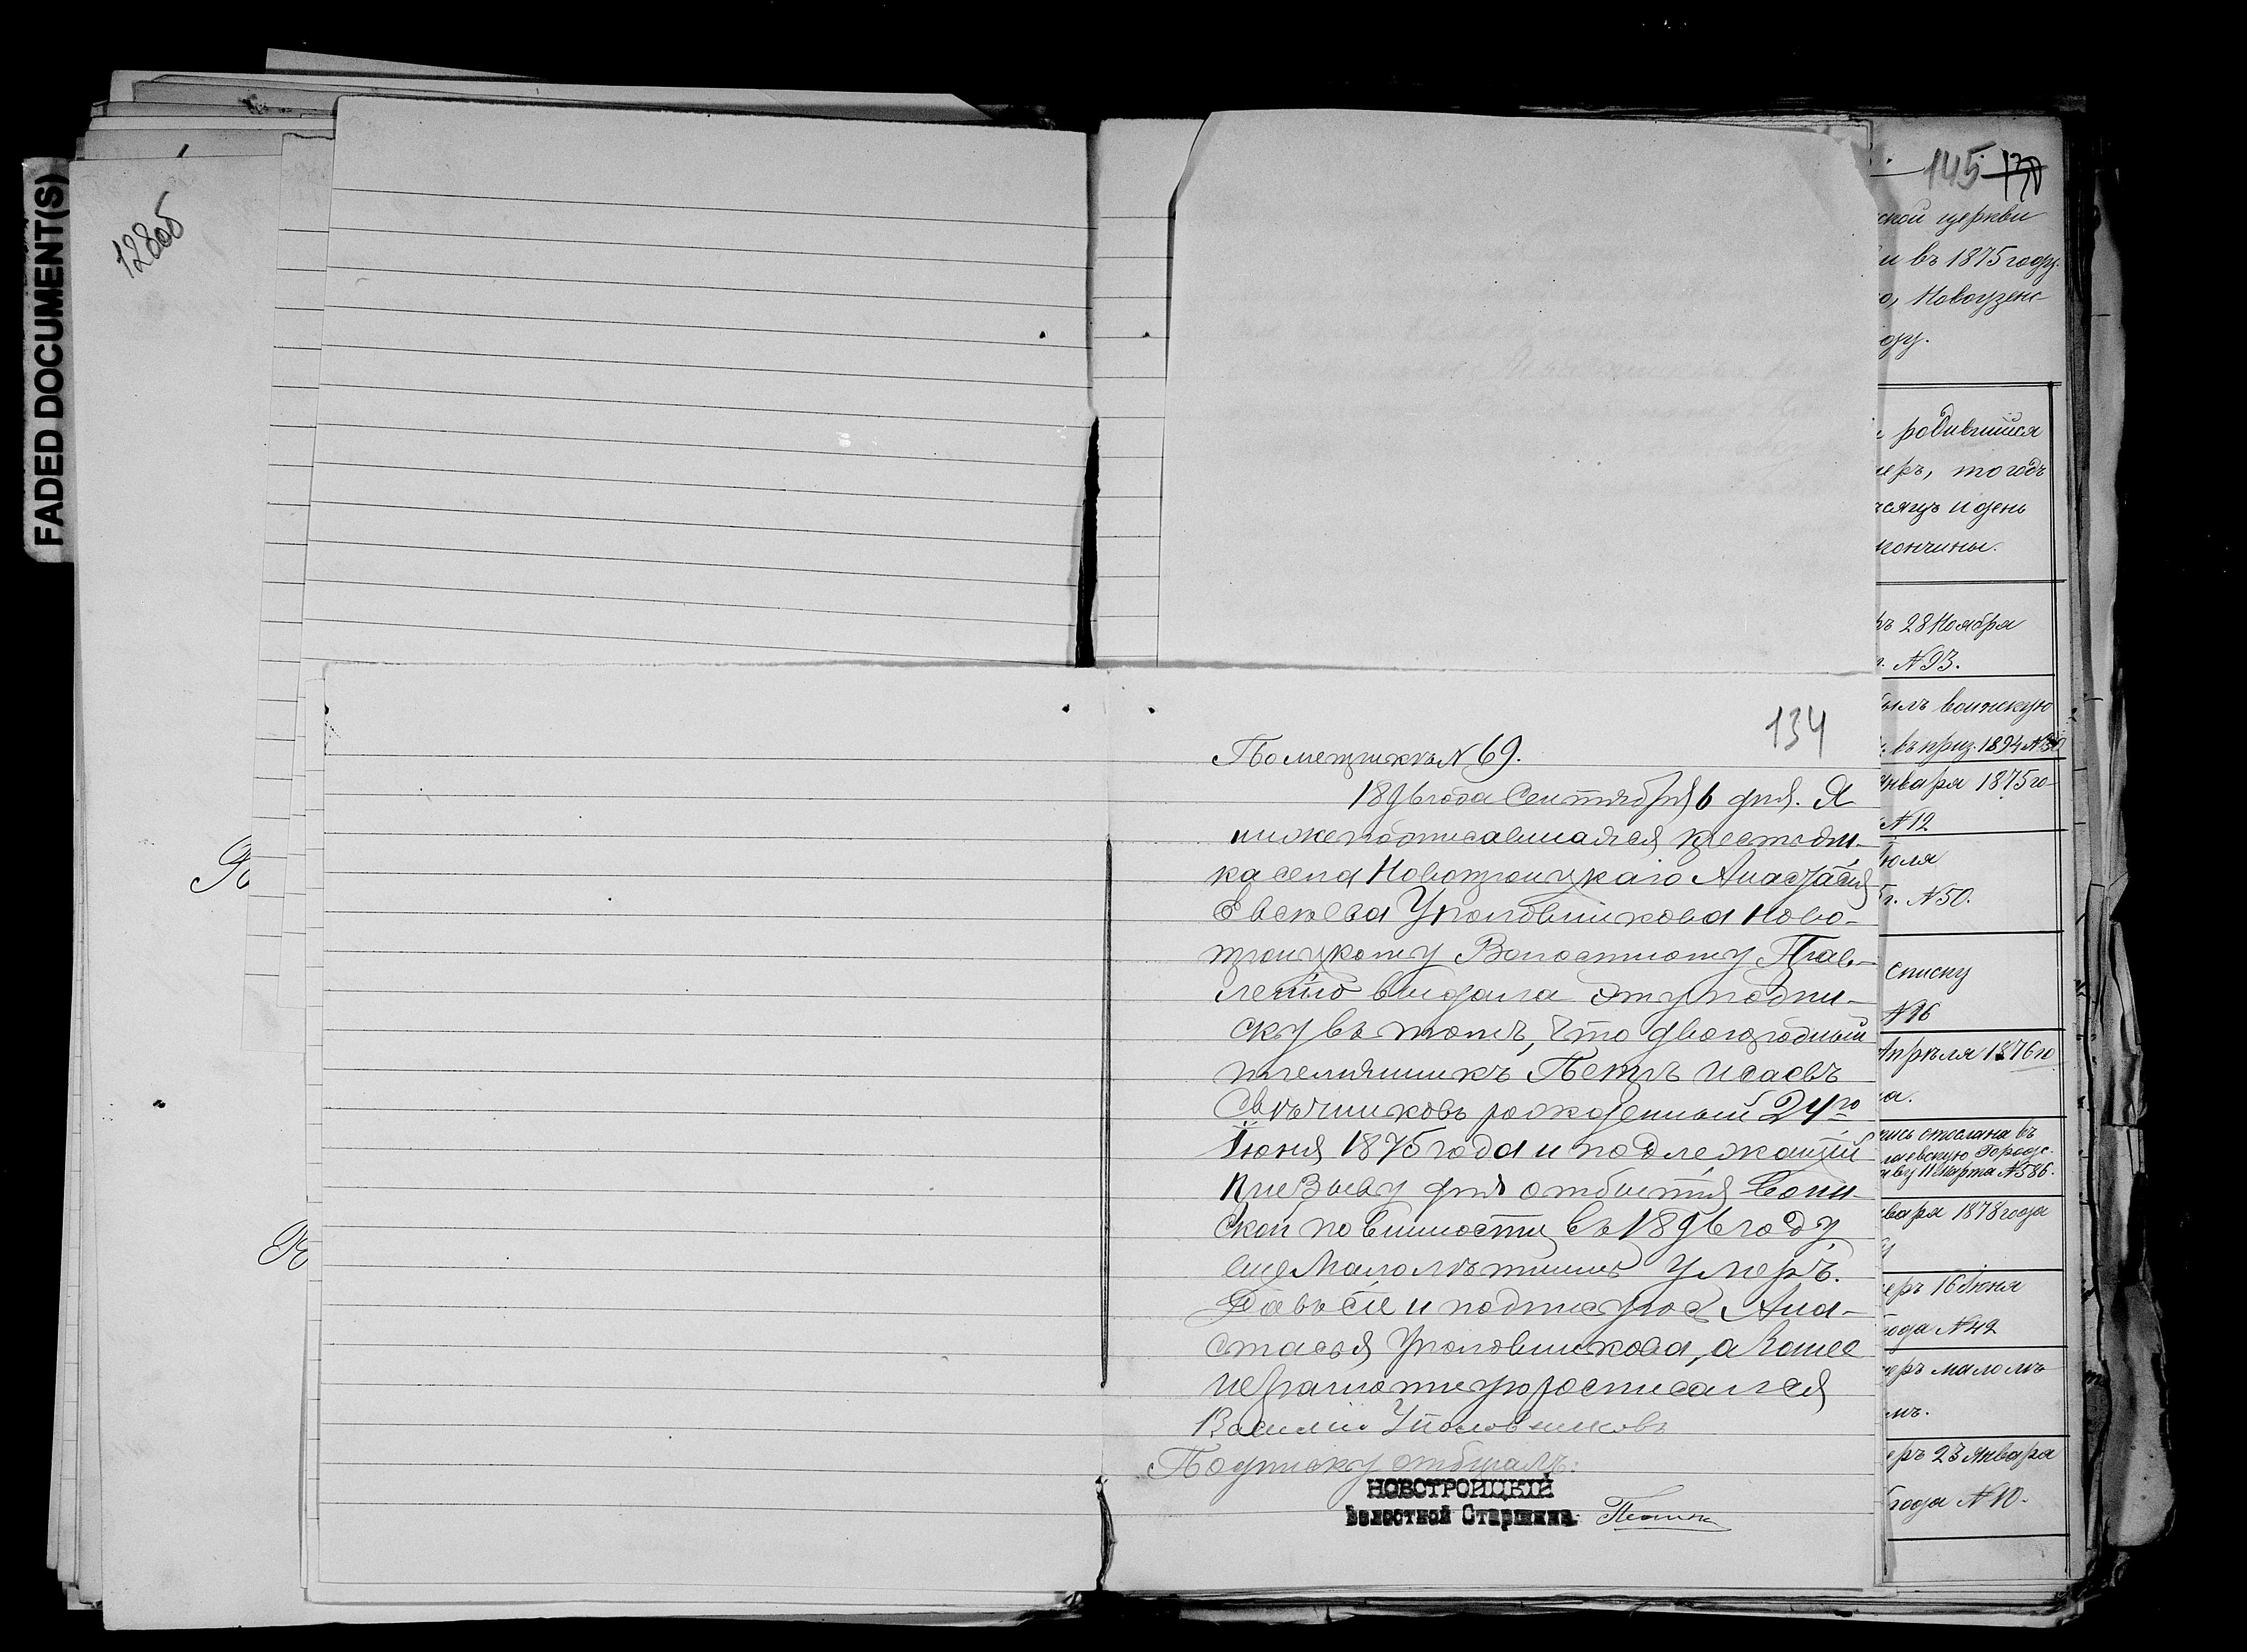 FADED DOCUMENT(S)
128об
145 130
ской церкви
и въ 1875 году.
о, Новоузенс-
оду.
родившiйся
меръ, то годъ
есяцъ и день
кончины.
ръ 28 Ноября
г. N 93.
былъ воинскую
въ приз. 1894 N 30
Января 1875 го-
N 12
Iюля
г. N 50.
списку
N 96
Апрѣля 1876 го
а.
пись отослана въ
лаевскую Городс.
аву 11 Марта N 586.
варя 1878 года
меръ 16 Iюня
года N 42
меръ малолѣ
мъ.
еръ 23 Января
года N 10.
134
Помещикъ N 69.
1896 года Сентября 6 дня. Я
нижеподписавшаяся крестьян-
ка села Новотроицкаго Анастасiя
Евсѣева Уполовникова Ново-
троицкому Волостному Прав-
ленiю выдала эту подпи-
ску въ томъ, что двоюродный
племянникъ Петръ Исаевъ
Свѣчниковъ рожденный 24го
Iюня 1875 года и подлежащiй
призыву для отбытiя Воин-
ской повинности въ 1896 году
еще Малолѣтнимъ умеръ.
Въ сiе и подписуюсь Ана-
стасья Уполовникова, а за нее
неграмотную росписался
Василiй Уполовниковъ
Подписку отбиралъ:
НОВОТРОИЦКIЙ
Волостной Старшина